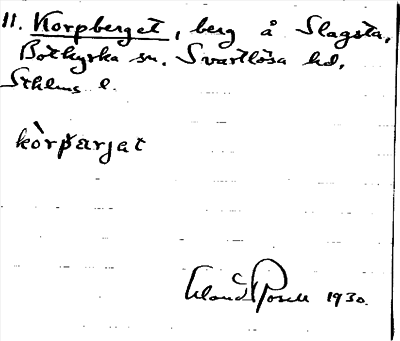 11. Korpberget, berg å Slagsta,
Botkyrka sn. Svartlösa hd,
Sthlms l.
kòrpærjat
Erland Rosell 1930.